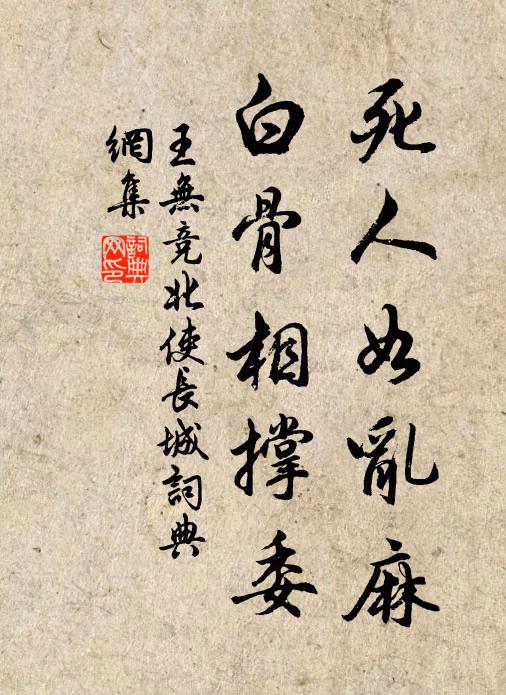 死人如亂麻
白骨相撐委
王無竞北使長城詞典
網集
詞典
网印